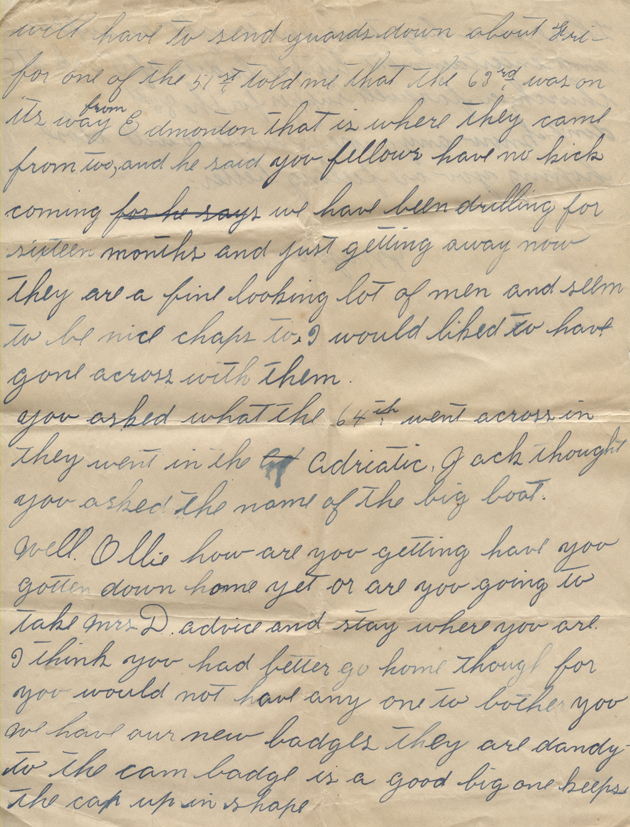 will have to send guards down about Fri-
for one of the 51st told me that the 63rd was on
its way from Edmonton that is where they came
from too, and he said you fellows have no kick
coming for he says we have been drilling for
sixteen months and just getting away now
they are a fine looking lot of men and seem
to be nice chaps to, I would liked to have
gone across with them.
you asked what the 64th went across in
they went in the Adriatic, Jack thought
you asked the name of the big boat.
Well Ollie how are you getting have you
gotten down home yet or are you going to
take Mrs D. advice and stay where you are.
I think you had better go home though for
you would not have any one to bother you
We have our new badges they are dandy
to the cam badge is a good big one keeps
the cap up in shape